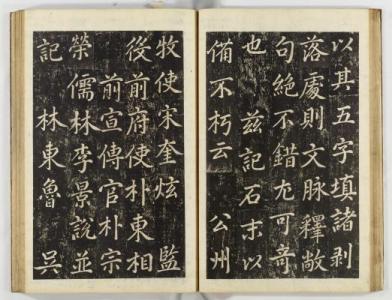 以其五字填諸剥
落處則文脉釋敞
句絶不錯尤可奇
也 茲記石末以
備不朽云 公州
牧使宋奎炫 監
後前府使朴東相
前宣傳官朴宗
榮 儒林李景說並
記 林東魯 吴